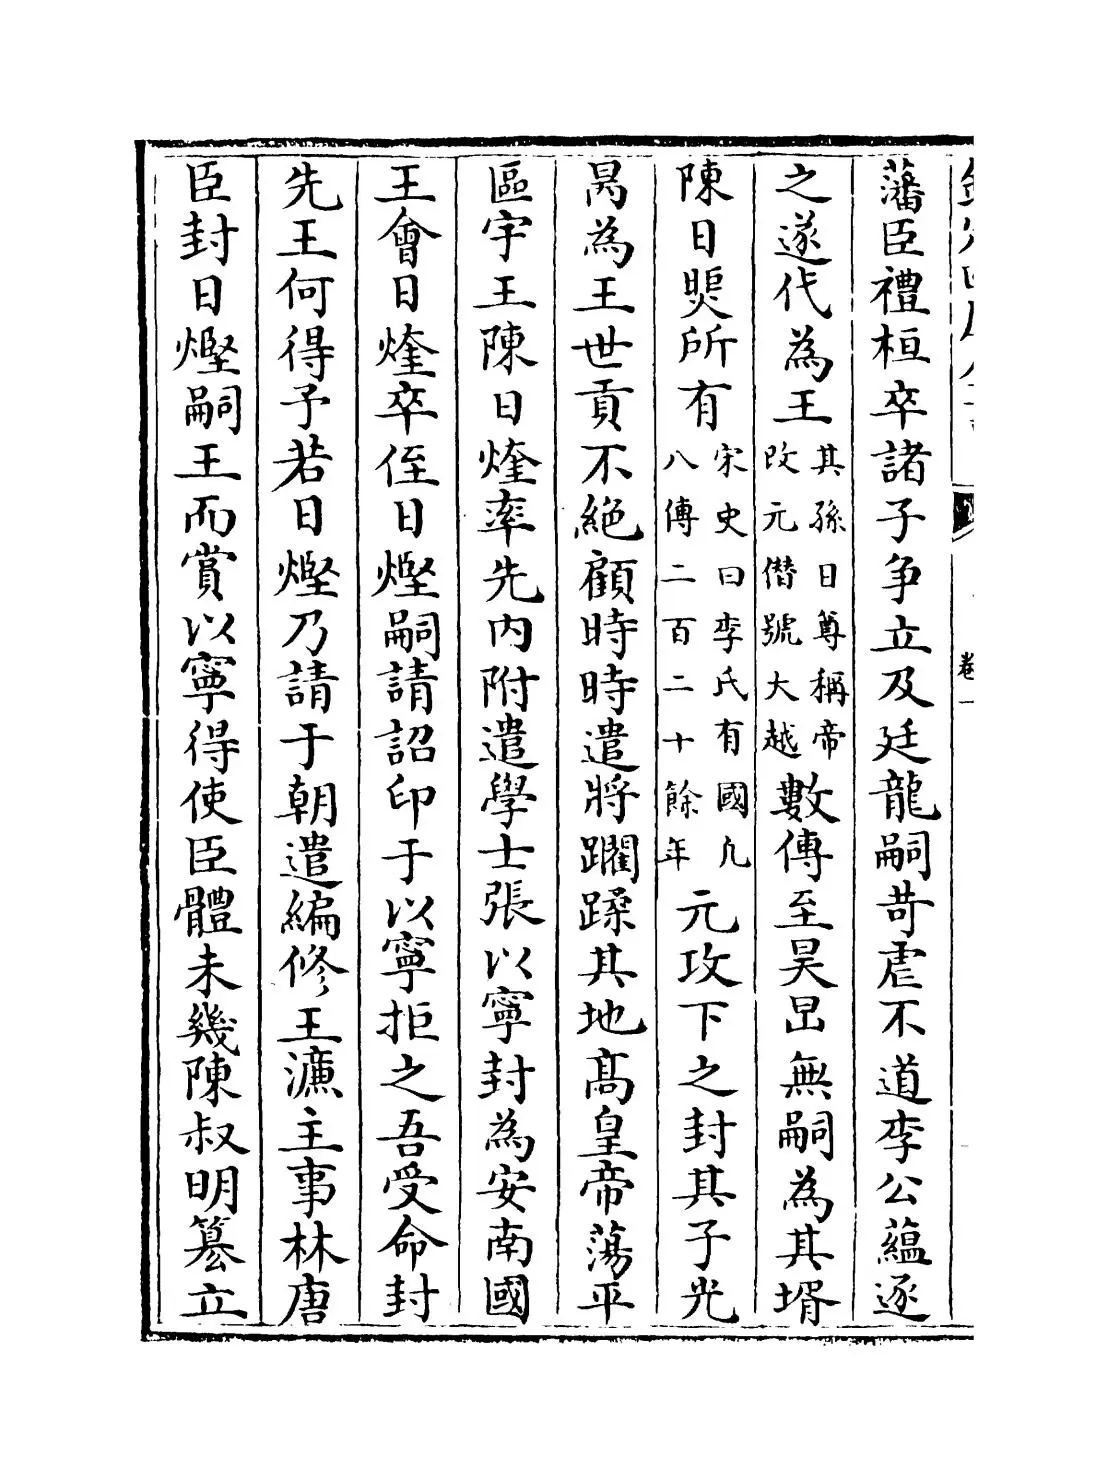 藩臣禮桓卒諸子争立及廷龍嗣苛虐不道李公藴逐
之遂代為王其孫日尊稱帝改元僭號大越數傳至昊旵無嗣為其壻
陳日煚所有宋史曰李氏有國凡八傳二百二十餘年元攻下之封其子光
昺為王世貢不絶顧時時遣將躙蹂其地髙皇帝蕩平
區宇王陳日煃率先内附遣學士張以寧封為安南國
王會日煃卒侄日熞嗣請詔印于以寧拒之吾受命封
先王何得予若日熞乃請于朝遣編修王濂主事林唐
臣封日熞嗣王而賞以寧得使臣體未幾陳叔明簒立
卷一